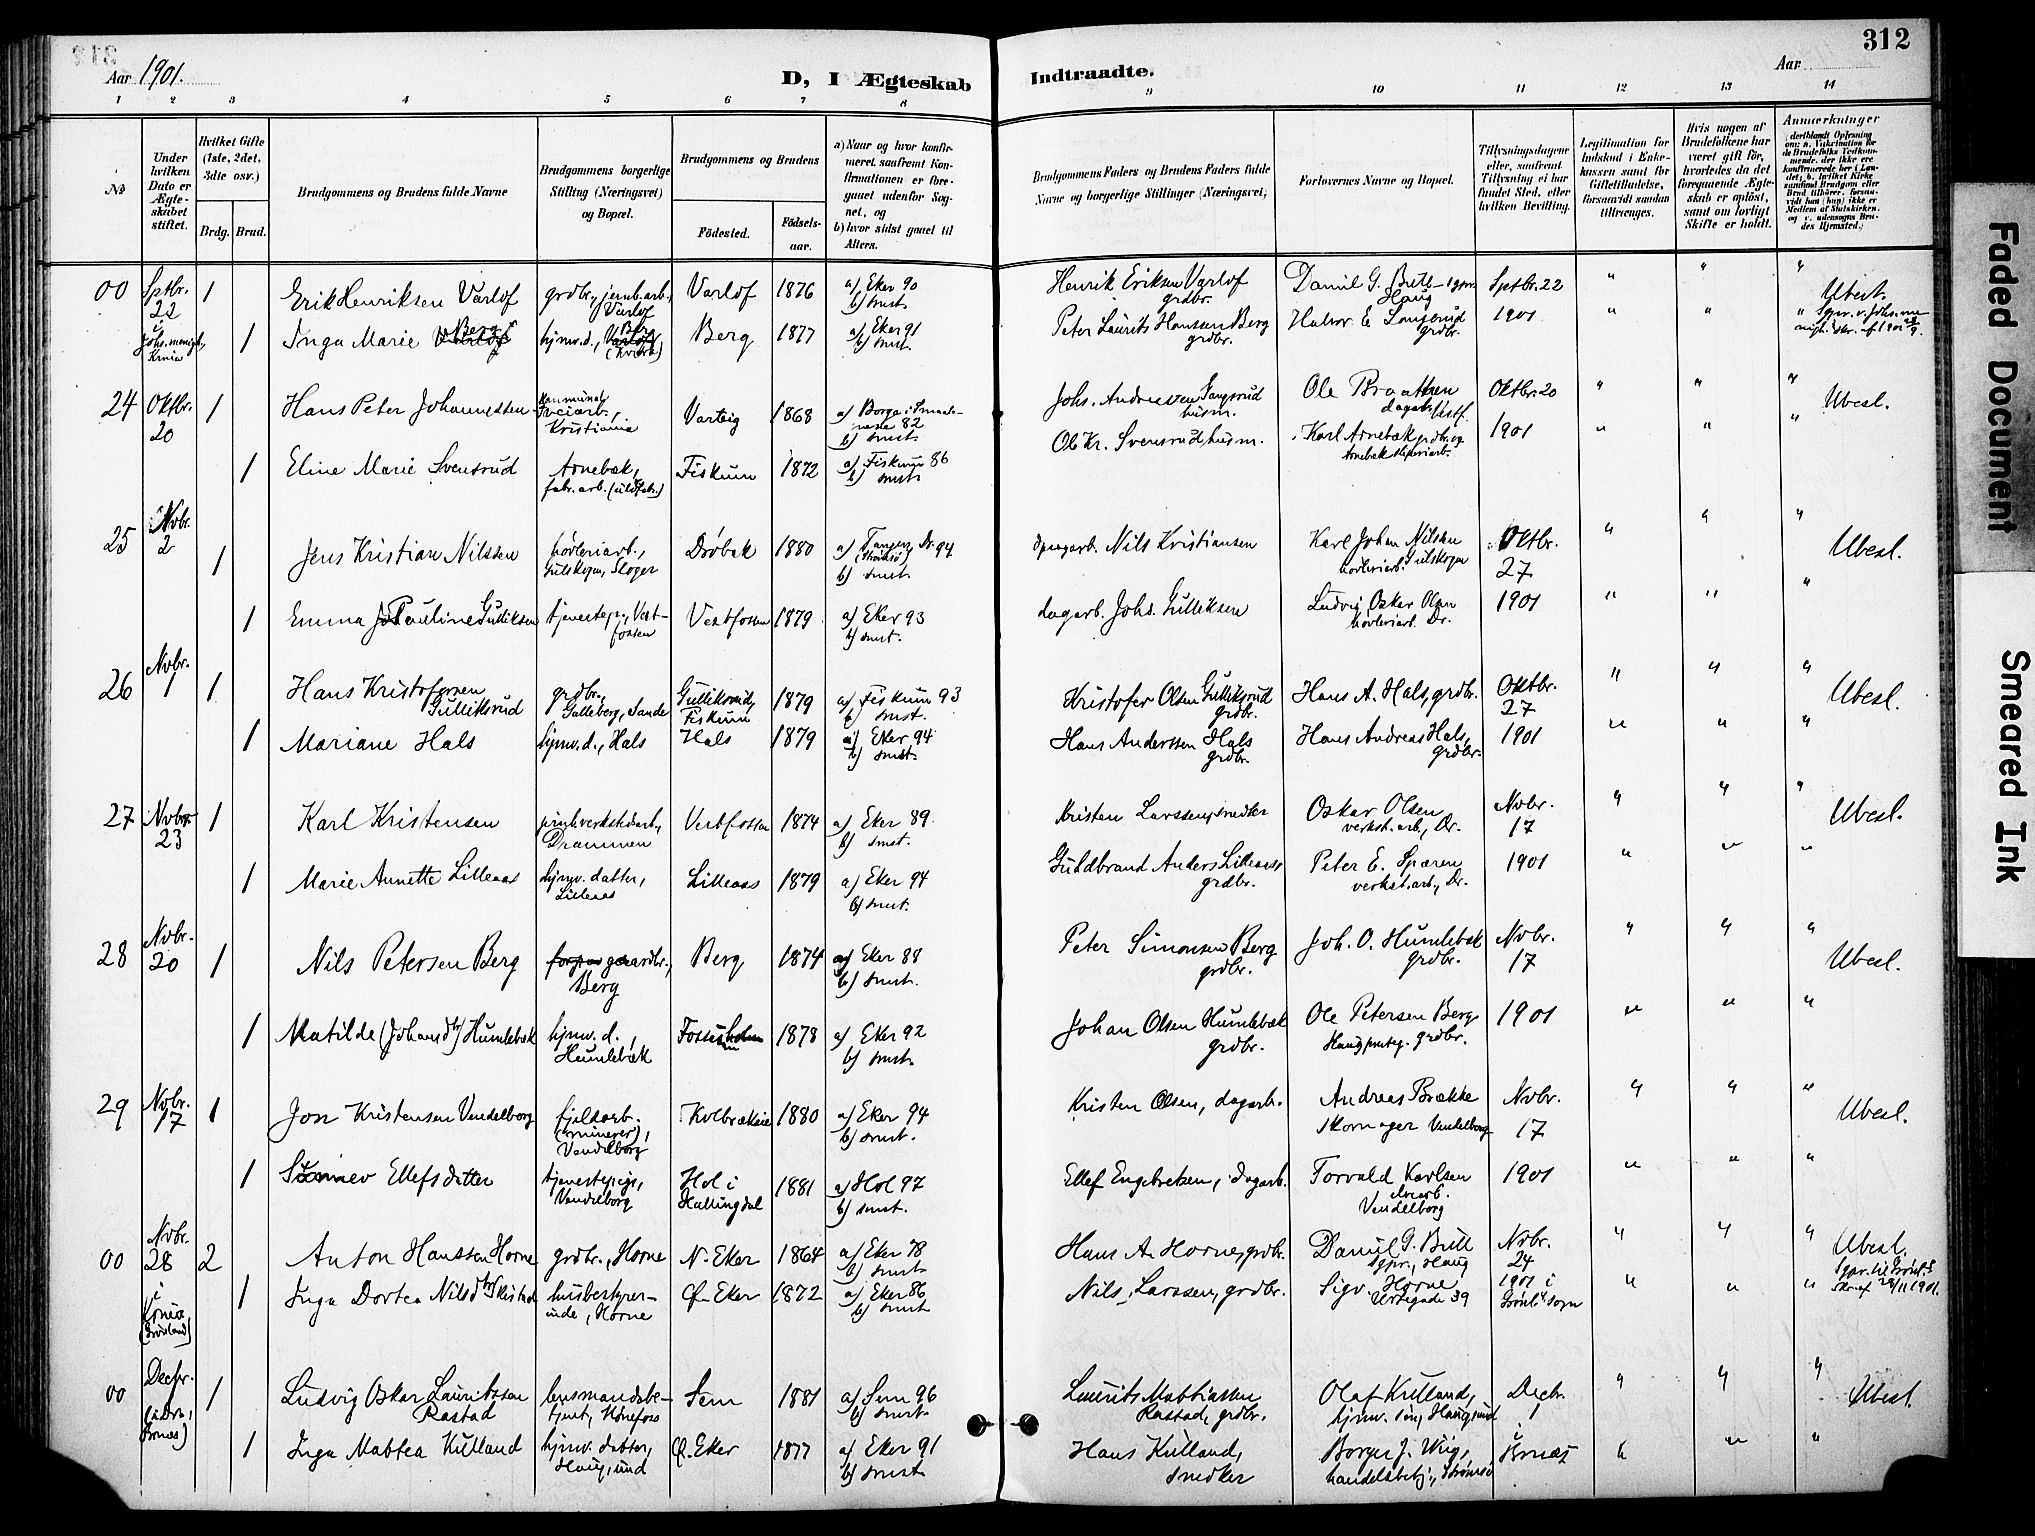 312
Aar 1901.
D, I Ægteskab Indtraadte.
Aar
1 2 3 4 5 6 7 8 9 10 11 12 13 14
No
Under hvilken Dato er Ægteskabet stiftet.
Hvilket Gifte (1ste, 2det, 3die osv.)
Brdg. Brud.
Brudgommens og Brudens fulde Navne
Brudgommens borgerlige Stilling (Næringsvei) og Bopæl.
Brudgommens og Brudens
Fødested. Fødsels-aar.
a) Naar og hvor konfirmeret, saafremt Konfirmationen er foregaaet udenfor Sognet, og b) hvor sidst gaaet til Alters.
Brudgommens Faders og Brudens Faders fulde Navne og borgerlige Stillinger (Næringsvei)
Forlovernes Navne og Bopæl.
Tillysningsdagene eller, saafremt Tillysning ei har fundet Sted, efter hvilken Bevilling.
Legitimation for Indskud i Enkekassen samt for Giftetilladelse, forsaavidt saadan tiltrænges.
Hvis nogen af Brudefolkene har været gift før, hvorledes da det foregaaende Ægteskab er opløst, samt om lovligt Skifte er holdt.
Anmerkninger
00 Sptbr. 22 1 Erik Henriksen Varlof grdbr., jernb.arb., Varlof Varlof 1876 a) Eker 90 b) smst. Henrik Eriksen Varlof grdbr. Sptbr. 22 " " " Ubesl.
1 Inga Marie Berg hjmv.d., Berg 1877 a) Eker 91 b) smst. Peter Laurits Hansen Berg grdbr. 1901 " " "
24 Oktbr. 20 1 Hans Peter Johannessen Kristiania Varteig 1868 a) Borge i Smaalenene 82 b) smst. Johs. Andreassen husm. Ole Braathen Oktbr. 20 " " " Ubesl.
1 Eline Marie Svensrud Arnebæk, fabr.arb. Fiskum 1872 a) Fiskum 86 b) smst. Ole Kr. Svensrud husm. Karl Arnebæk 1901 " " "
25 Nvbr. 2 1 Jens Kristian Nilssen høvleriarb., Gulskogen, Skoger Drøbak 1880 a) Tangen, Dr. 94 b) smst. Nils Kristiansen Karl Johan Nilsen høvleriarb. Gulskogen Oktbr. 27 " " " Ubesl.
1 Emma Pauline Gulliksen tjenestepg., Vestfossen Vestfossen 1879 a) Eker 93 b) smst. dagarb. Johs. Gulliksen Ludvig Oskar Olsen høvleriarb. Dr. 1901 " " "
26 Nvbr. 1 1 Hans Kristofersen Gulliksrud grdbr., Galleberg, Sande Gulliksrud, Fiskum 1879 a) Fiskum 93 b) smst. Kristofer Olsen Gulliksrud grdbr. Hans A. Hals, grdbr. Oktbr. 27 " " " Ubesl.
1 Mariane Hals hjmv.d., Hals Hals 1879 a) Eker 94 b) smst. Hans Anderssen Hals grdbr. Hans Andreas Hals, grdbr. 1901 " " "
27 Nvbr. 23 1 Karl Kristensen Drammen Vestfossen 1874 a) Eker 89 b) smst. Kristen Larssen, snedker Oskar Olsen verkst.arb., Dr. Nvbr. 17 " " " Ubesl.
1 Marie Annette Lilleaas hjmv. datter, Lilleaas Lilleaas 1879 a) Eker 94 b) smst. Guldbrand Anders. Lilleaas, grdbr. Peter E. Spæren verkst.arb., Dr. 1901 " " "
28 Nvbr. 20 1 Nils Petersen Berg gaardbr., Berg Berg 1874 a) Eker 88 b) smst. Peter Simonsen Berg grdbr. Joh. O. Humlebæk grdbr. Nvbr. 17 " " " Ubesl.
1 Matilde (Johansd.) Humlebæk hjmv. d., Humlebæk 1878 a) Eker 92 b) smst. Johan Olsen Humlebæk grdbr. Ole Petersen Berg grdbr. 1901 " " "
29 Nvbr. 17 1 Jon Kristensen Vendelborg fjeldarb. (minerer), Vendelborg Kolbrække 1880 a) Eker 94 b) smst. Kristen Olsen, dagarb. Andreas Brække skomager Vendelborg Nvbr. 17 " " " Ubesl.
1 Ellefsdatter tjenestepige, Vendelborg Hol i Hallingdal 1881 a) Hol 97 b) smst. Ellef Engebretsen, dagarb. Torvald Karlsen Vendelborg 1901 " " "
00 Nvbr. 28 i Kr.nia (Grønland) 2 Anton Hanssen Horne grdbr., Horne N. Eker 1864 a) Eker 78 b) smst. Hans A. Horne, grdbr. Sgpr., Haug Nvbr. 24 " " " Ubesl.
1 Inga Dortea Nilsdtr. husbestyrerinde, Horne Ø. Eker 1872 a) Eker 86 b) smst. Nils Larssen, grdbr. Sigv. Horne Urtegade 39 1901 i Grønl. sogn " " "
00 Decbr. 1 1 Ludvig Oskar Lauritssen Rastad lensmandsbetjent, Hønefoss Sem 1881 a) Sem 96 b) smst. Laurits Mathiassen Rastad, grdbr. Olaf Kulland, hjmv. søn, Haugsund Decbr. 1 " " " Ubesl.
1 Inga Mathea Kulland hjmv. datter, Haugsund Ø. Eker 1877 a) Eker 91 b) smst. Hans Kulland, snedker Borger J. Wiig, handelsbetj., Strømsø Bragernæs " " "
Faded Document
Smeared Ink